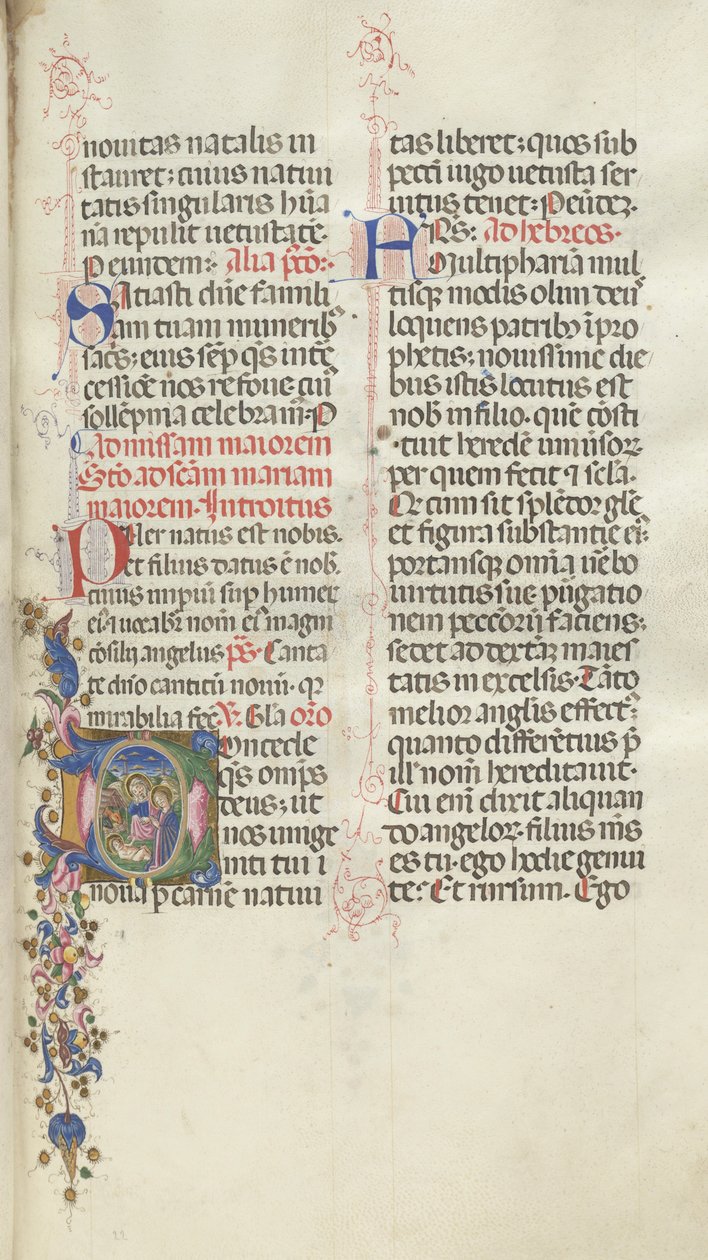 novitas natalis in
stauret; cuius nativi
tatis singularis hūa
nā repulit vetustatē.
P eundem: Alia p̄co:
Satiasti dn̄e famili
am tuam munerib9
sac̄s; eius sēp q̄s inte
cessiōe nos refove cui9
sollēpnia celebram9. P
Ad missam maiorem
Stō ad scām mariam
maiorem. Introitus
Puer natus est nobis.
et filius datus ē nob̄.
cuius imp̄iū sup̄ humer
ei9. ⁊ vocabr̄ nom̄ ei9 magni
cōsilij angelus p̄s. Canta
te dn̄o canticū novū. qr̄
mirabilia fec̄. V. Gl̄a or̄o
Concede
q̄s omp̄s
deus; ut
nos unige
niti tui i
nova p̄ carnē nativi
tas liberet; quos sub
pecc̄i iugo vetusta ser
vitus tenet: P eūdez.
Ad hebreos.
Multiphariā mul
tisq3 modis olim deus
loquens patrib9 ī pro
phetis; novissime die
bus istis locutus est
nob̄ in filio. quē cōsti
tuit heredē univ̄sor̄.
per quem fecit ⁊ scl̄a.
Qr̄ cum sit splēdor gl̄e
et figura substantie ei9:
portansq3 om̄ia v̄bo
virtutis sue p̄gatio
nem pecc̄orū faciens;
sedet ad dextā3 maies
tatis in excelsis. Tāto
melior angl̄is effect9
quanto differētius p̄
ill̄ nom̄ hereditavit.
Cui eni dixit aliquan
do angelor̄. filius m̄s
es tu. ego hodie genui
te? Et rursum. Ego
22